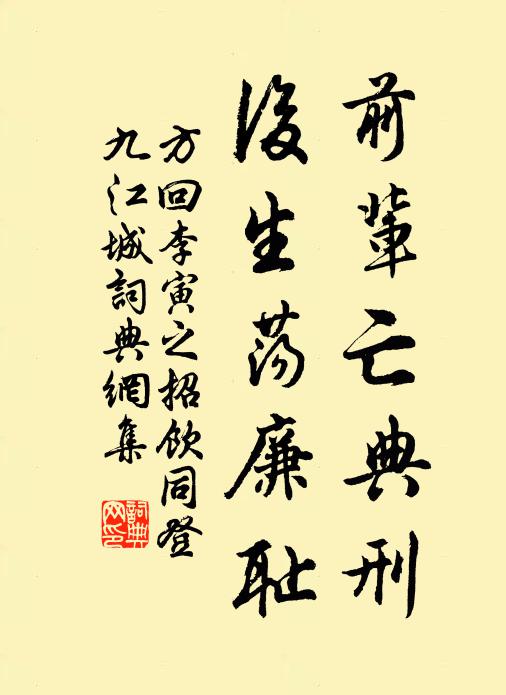 前輩亡典刑
後生荡廉耻
方回李寅之招飲同登
九江城詞典網集
詞典
网印